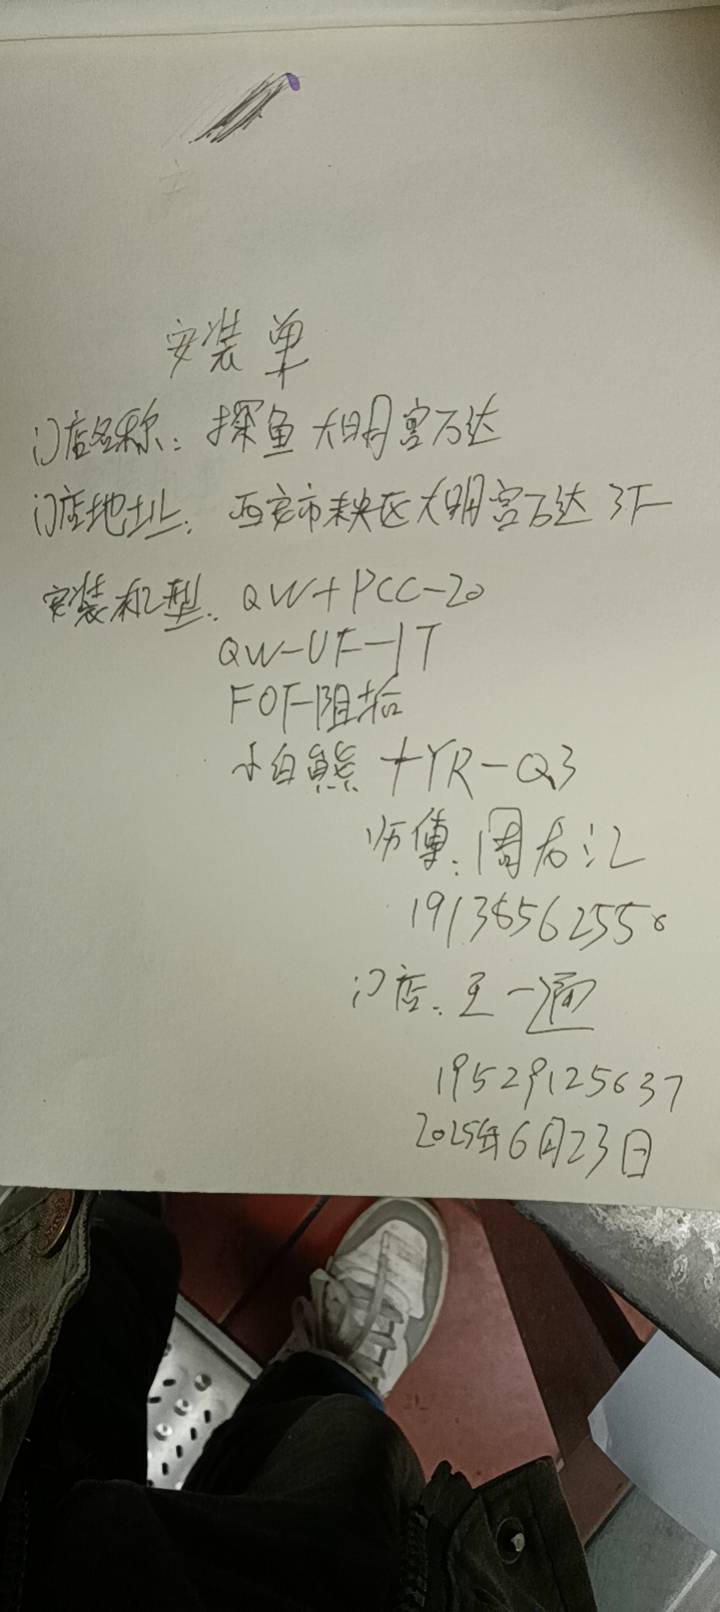 安装单
门店名称：探鱼大明宫万达
门店地址：西安市未央区大明宫万达3F
安装机型：QW+PCC-20
QW-UF-1T
FOF-阻垢
小白熊+YR-Q3
师傅：周右江
19138562550
门店：王一通
19529125637
2025年6月23日